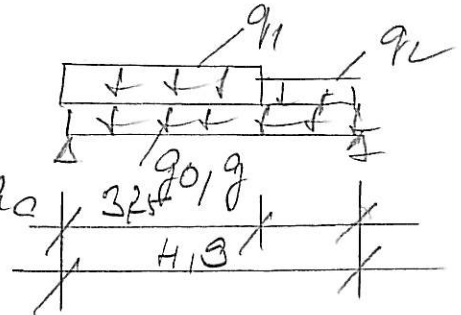 q1
q2
g0, g
3,25
4,9